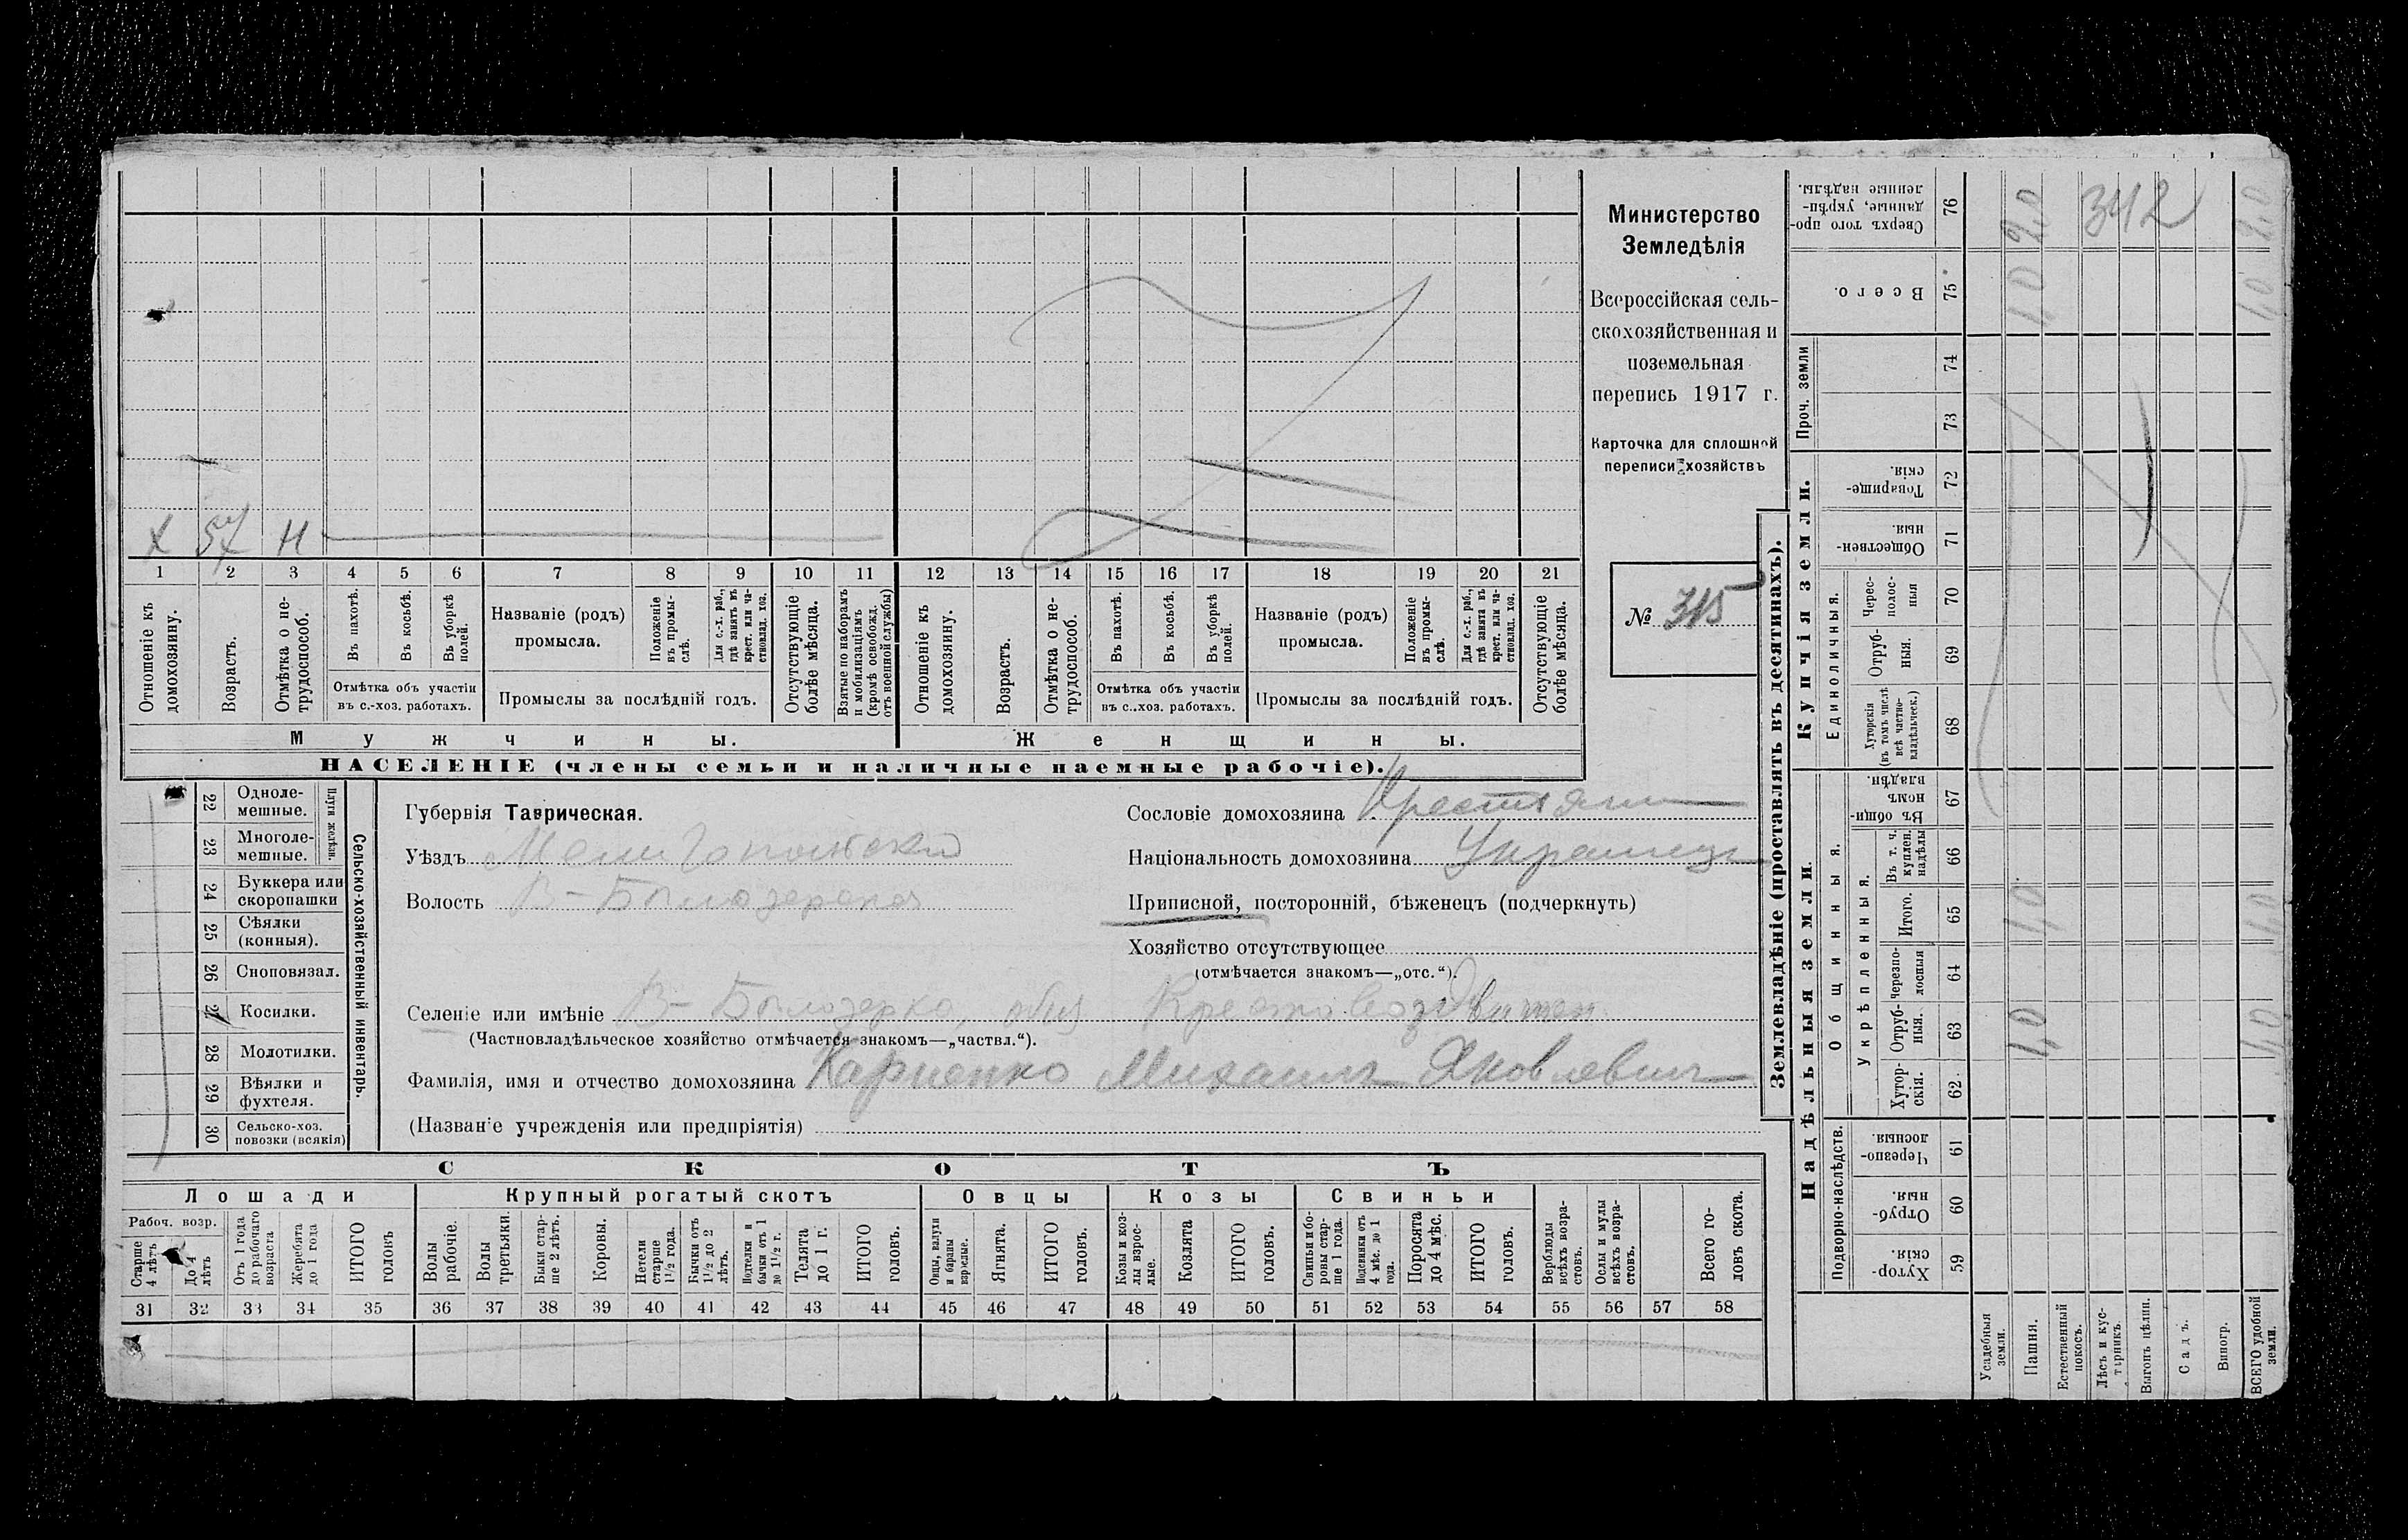 Министерство
Земледѣлія
Всероссійская сель-
скохозяйственная и
поземельная
перепись 1917 г.
Карточка для сплошной
переписи хозяйствъ
№ 315
X 57 Н
1 2 3 4 5 6 7 8 9 10 11 12 13 14 15 16 17 18 19 20 21
Отношеніе къ домохозяину.
Возрастъ.
Отмѣтка о не-трудоспособ.
Въ пахотѣ.
Въ косьбѣ.
Въ уборкѣ полей.
Отмѣтка объ участіи
въ с.-хоз. работахъ.
Названіе (родъ)
промысла.
Положеніе въ промы-слѣ.
Для с.-х. раб., гдѣ занятъ въ крест. или ча-стновлад. хоз.
Промыслы за послѣдній годъ.
Отсутствующіе болѣе мѣсяца.
Взятые по наборамъ и мобилизаціямъ (кромѣ освобожд. отъ военной службы)
Отношеніе къ домохозяину.
Возрастъ.
Отмѣтка о не-трудоспособ.
Въ пахотѣ.
Въ косьбѣ.
Въ уборкѣ полей.
Отмѣтка объ участіи
въ с.-хоз. работахъ.
Названіе (родъ)
промысла.
Положеніе въ промы-слѣ.
Для с.-х. раб., гдѣ занята въ крест. или ча-стновлад. хоз.
Промыслы за послѣдній годъ.
Отсутствующіе болѣе мѣсяца.
Мужчины. Женщины.
НАСЕЛЕНІЕ (члены семьи и наличные наемные рабочіе).
22 Одноле-мешные.
23 Многоле-мешные.
Плуги желѣзн.
24 Буккера или скоропашки
25 Сѣялки (конныя).
26 Сноповязал.
27 Косилки.
28 Молотилки.
29 Вѣялки и фухтеля.
30 Сельско-хоз. повозки (всякія)
Сельско-хозяйственный инвентарь.
Губернія Таврическая.
Уѣздъ Мелитопольский
Волость В-Бѣлозерская
Сословіе домохозяина Крестьянин
Національность домохозяина Украинецъ
Приписной, посторонній, бѣженецъ (подчеркнуть)
Хозяйство отсутствующее
(отмѣчается знакомъ—„отс.“).
Селеніе или имѣніе В-Бѣлозерка, общ Крестовоздвижен
(Частновладѣльческое хозяйство отмѣчается знакомъ—„частвл.“).
Фамилія, имя и отчество домохозяина Карпенко Михаилъ Яковлевичъ
(Названіе учрежденія или предпріятія)
СКОТЪ
Лошади Крупный рогатый скотъ Овцы Козы Свиньи
Рабоч. возр.
Старше 4 лѣтъ
До 4 лѣтъ
Отъ 1 года до рабочаго возраста
Жеребята до 1 года
ИТОГО головъ
Волы рабочіе.
Волы третьяки.
Быки стар-ше 2 лѣтъ.
Коровы.
Нетели старше 1½ года.
Бычки отъ 1½ до 2 лѣтъ.
Подтелки и бычки отъ 1 до 1½ г.
Телята до 1 г.
ИТОГО головъ.
Овцы, валухи и бараны взрослые.
Ягнята.
ИТОГО головъ.
Козы и коз-лы взрос-лые.
Козлята
ИТОГО головъ.
Свиньи и бо-ровы стар-ше 1 года.
Подсвинки отъ 4 мѣс. до 1 года.
Поросята до 4 мѣс.
ИТОГО головъ.
Верблюды всѣхъ возра-стовъ.
Ослы и мулы всѣхъ возра-стовъ.
Всего го-ловъ скота.
31 32 33 34 35 36 37 38 39 40 41 42 43 44 45 46 47 48 49 50 51 52 53 54 55 56 57 58
Землевладѣніе (проставлять въ десятинахъ).
Купчія земли.
Надѣльныя земли.
Сверхъ того про-данные, укрѣп-ленные надѣлы. 76
Всего. 75
Проч. земли 74 73
Товарище-скія. 72
Обществен-ныя. 71
Единоличныя.
Черес-полос-ныя 70
Отруб-ныя. 69
Хуторскія (въ томъ числѣ всѣ частно-владѣльческ.) 68
Общинныя.
Въ общин-номъ владѣн. 67
Укрѣпленныя.
Въ т. ч. куплен. надѣлы 66
Итого. 65
Черезпо-лосныя 64
Отруб-ныя. 63
Хутор-скія. 62
Подворно-наслѣдств.
Черезпо-лосныя. 61
Отруб-ныя. 60
Хутор-скія. 59
Усадебныя земли.
Пашня.
Естественный покосъ.
Лѣсъ и кус-тарникъ
Выгонъ цѣлин.
Садъ.
Виногр.
ВСЕГО удобной земли.
342